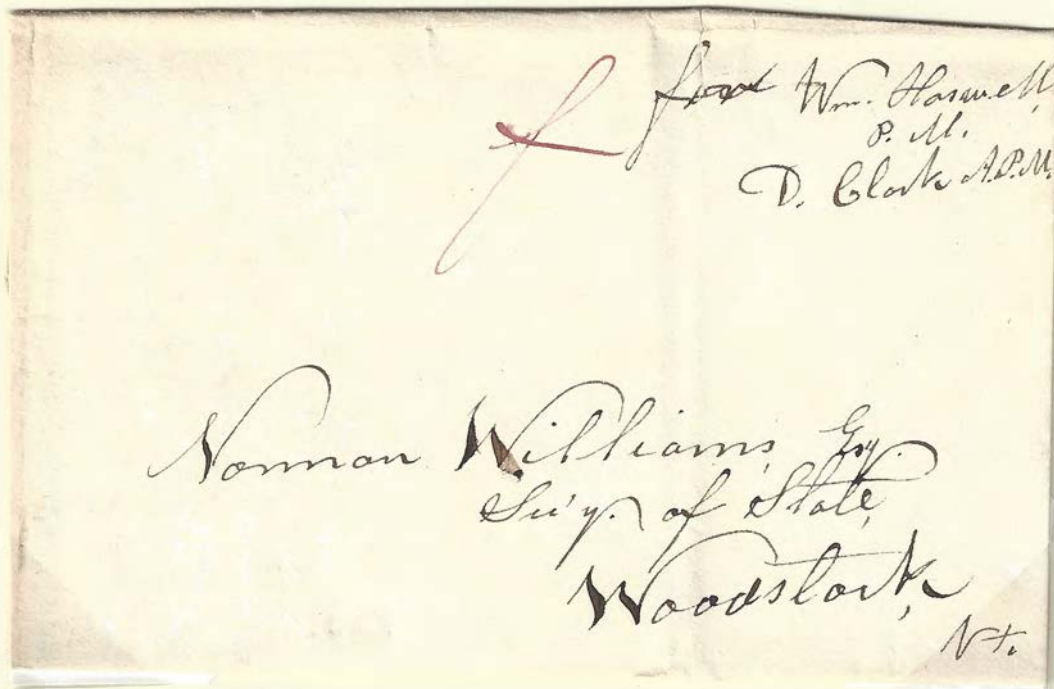 free Wm. Haswell,
P. M.
D. Clark A.P.M.
Norman Williams, Esq.
Sec'y. of State,
Woodstock,
Vt.